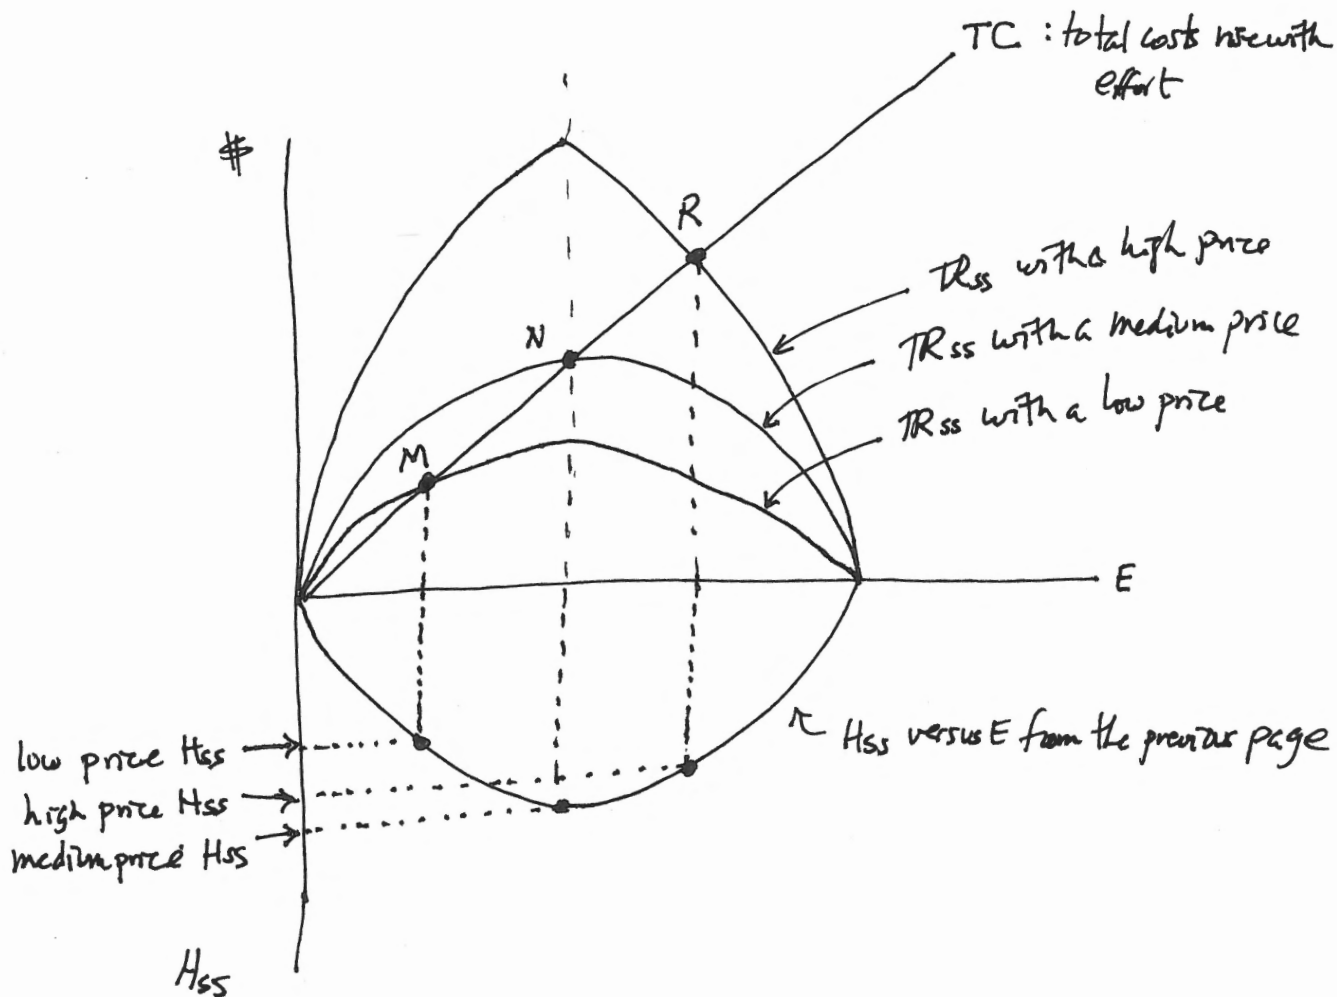 TC : total costs rise with
effort
$
R
TRss with a high price
N
TRss with a medium price
TRss with a low price
M
E
Hss versus E from the previous page
low price Hss
high price Hss
medium price Hss
Hss